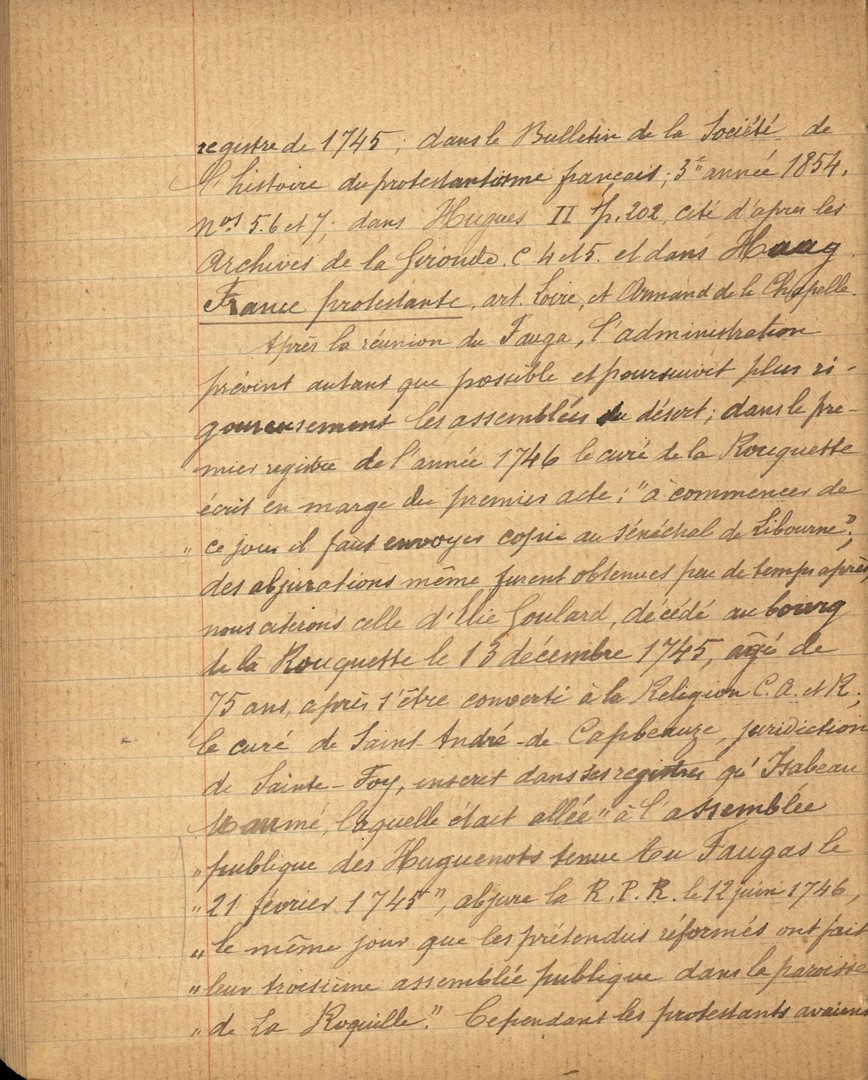 registre de 1745 ; dans le Bulletin de la Société de
l'histoire du protestantisme français ; 3e année 1854,
nos 5. 6 et 7 ; dans Hugues II p. 202, cité d'après les
Archives de la Gironde. C 4 et 5. et dans Haag
France protestante, art. Loire, et Armand de la Chapelle.
Après la réunion du Fauga, l'administration
prévint autant que possible et poursuivit plus ri-
goureusement les assemblées du désert ; dans le pre-
mier registre de l'année 1746 le curé de la Rouquette
écrit en marge du premier acte ; "à commencer de
" ce jour il faut envoyer copie au sénéchal de Libourne" ;
des abjurations même furent obtenues peu de temps après,
nous citerons celle d'Elie Goulard, décédé au bourg
de la Rouquette le 13 décembre 1745, agé de
75 ans, après s'être converti à la Religion C. A. et R.;
le curé de Saint André-de Capbeauze, juridiction
de Sainte-Foy, inscrit dans ses registres qu'Isabeau
laquelle était allée "à l'assemblée
" publique des Huguenots tenue au Faugas le
" 21 février 1745", abjure la R. P. R. le 12 juin 1746,
" le même jour que les prétendus réformés ont fait
" leur troisième assemblée publique dans la paroisse
" de La Roquille." Cependant les protestants avaient